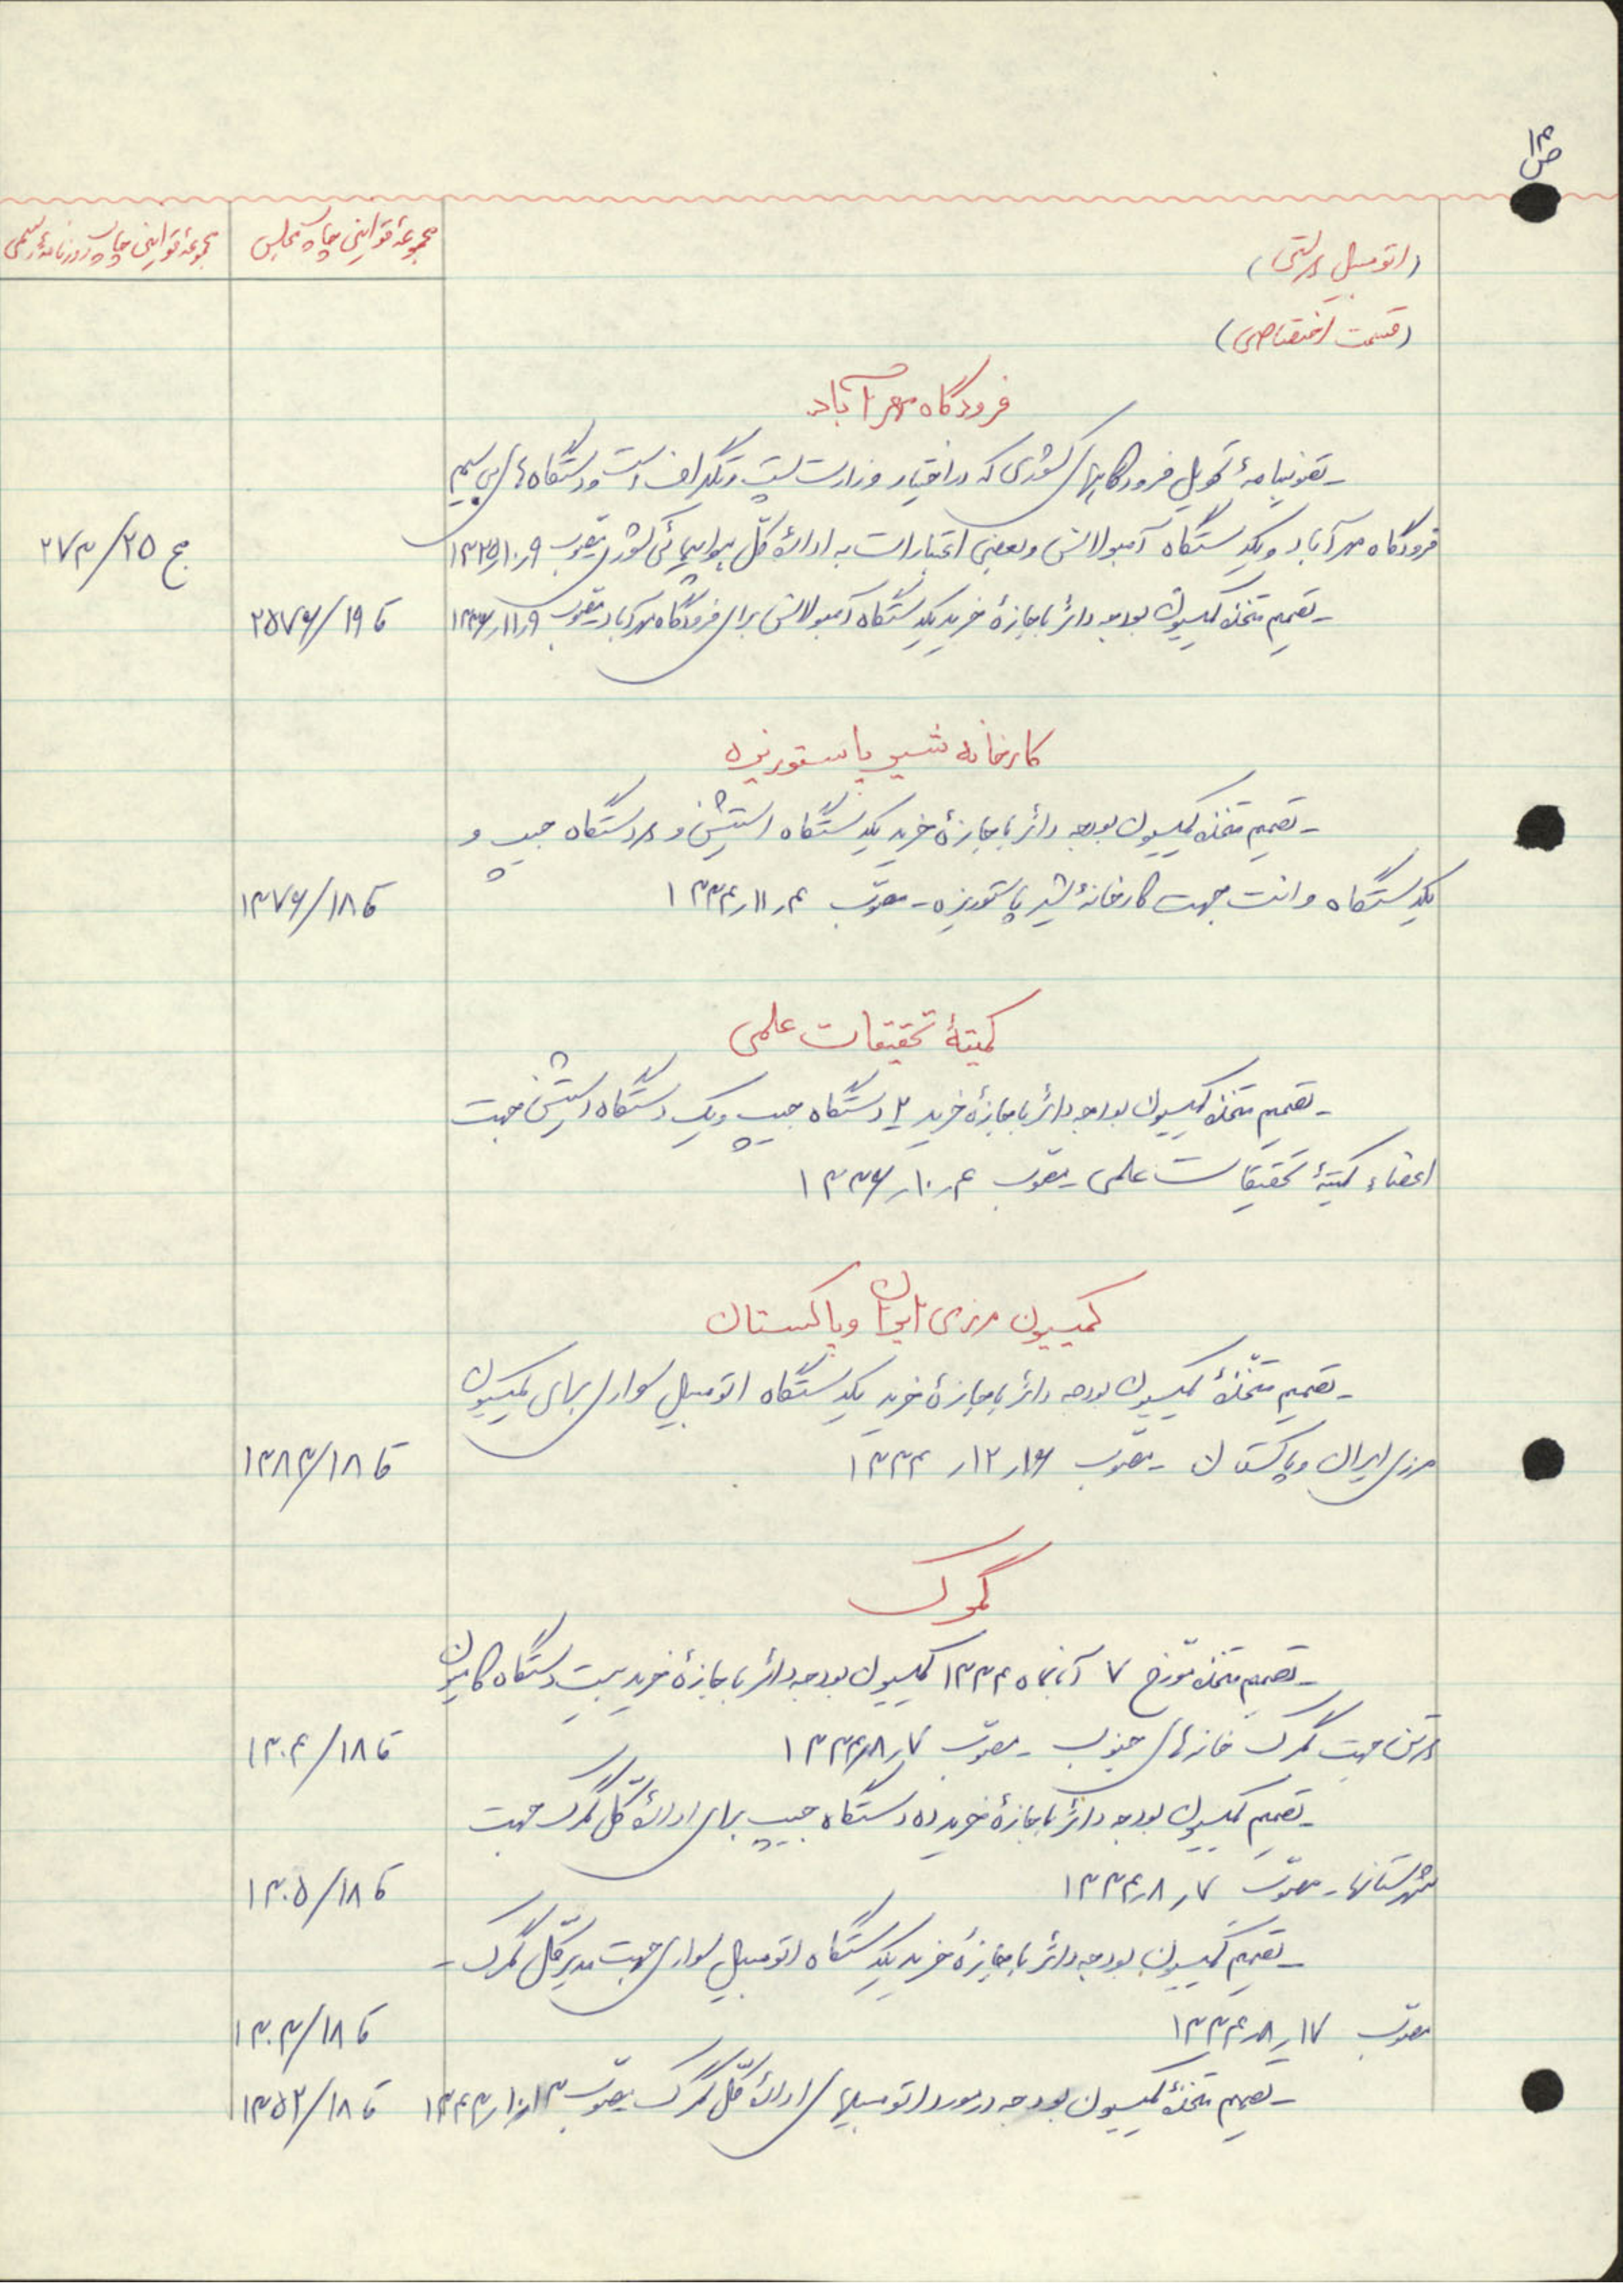 ص ۱۳
مجموعهٔ قوانین چاپ مجلس
مجموعهٔ قوانین چاپ روزنامهٔ رسمی
(اتومبیل دولتی)
(قسمت اختصاصی)
فرودگاه مهرآباد
ـ تصویبنامهٔ تحویل فرودگاههای کشوری که در اختیار وزارت پست و تلگراف است و دستگاه‌های بی سیم
فرودگاه مهرآباد و یکدستگاه آمبولانس و بعضی اعتبارات به ادارهٔ کلّ هواپیمائی کشوری مصوّب ۹ر۱۰ر۱۳۲۵
ج ۲۵/۲۷۳
ـ تصمیم متخذه کمیسیون بودجه دائر باجازهٔ خرید یکدستگاه آمبولانس برای فرودگاه مهرآباد مصوّب ۹ر۱۱ر۱۳۳۶
قا ۱۹/۲۵۷۶
کارخانه شیر پاستوریزه
ـ تصمیم متخذه کمیسیون بودجه دائر باجازهٔ خرید یکدستگاه استیشن و دستگاه جیپ و
یکدستگاه وانت جهت کارخانهٔ شیر پاستوریزه ـ مصوّب ۴ر۱۱ر۱۳۳۴
قا ۱۸/۱۳۷۶
کمیتهٔ تحقیقات علمی
ـ تصمیم متخذه کمیسیون بودجه دائر باجازهٔ خرید ۲ دستگاه جیپ و یک دستگاه استیشن جهت
اعضاء کمیتهٔ تحقیقات علمی ـ مصوّب ۴ر۱۰ر۱۳۳۶
کمیسیون مرزی ایران و پاکستان
ـ تصمیم متّخذهٔ کمیسیون بودجه دائر باجازهٔ خرید یکدستگاه اتومبیل سواری برای کمیسیون
مرزی ایران و پاکستان ـ مصوّب ۱۶ر۱۲ر۱۳۳۴
قا ۱۸/۱۳۸۳
گمرک
ـ تصمیم متخذه مورّخ ۷ آبانماه ۱۳۳۴ کمیسیون بودجه دائر باجازهٔ خرید بیست دستگاه کامیون
جهت گمرک خانه‌های جنوب ـ مصوّب ۷ر۸ر۱۳۳۴
قا ۱۸/۱۳۰۴
ـ تصمیم کمیسیون بودجه دائر باجازهٔ خرید ده دستگاه جیپ برای ادارهٔ کلّ گمرک جهت
شهرستانها ـ مصوّب ۷ر۸ر۱۳۳۴
قا ۱۸/۱۳۰۵
ـ تصمیم کمیسیون بودجه دائر باجازهٔ خرید یکدستگاه اتومبیل سواری جهت مدیر کلّ گمرک ـ
مصوّب ۱۷ر۸ر۱۳۳۴
قا ۱۸/۱۳۰۳
ـ تصمیم متخذهٔ کمیسیون بودجه در مورد اتومبیلهای ادارهٔ کلّ گمرک مصوّب
قا ۱۸/۱۳۵۲